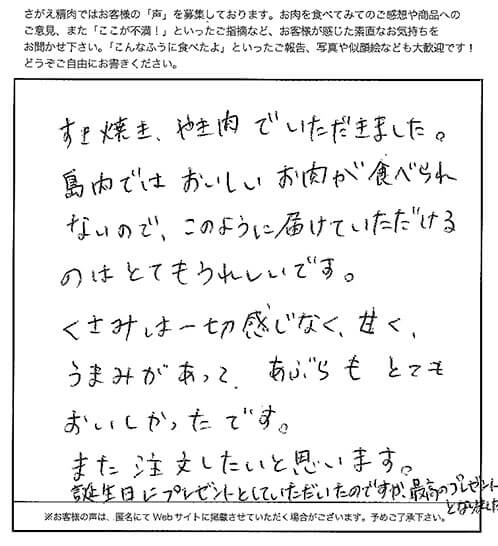 さがえ精肉ではお客様の「声」を募集しております。お肉を食べてみてのご感想や商品への
ご意見、また「ここが不満！」といったご指摘など、お客様が感じた素直なお気持ちを
お聞かせ下さい。「こんなふうに食べたよ」といったご報告、写真や似顔絵なども大歓迎です！
どうぞご自由にお書きください。
すき焼き、やき肉でいただきました。
島内ではおいしいお肉が食べられ
ないので、このように届けていただける
のはとてもうれしいです。
くさみは一切感じなく、甘く、
うまみがあって、あぶらもとても
おいしかったです。
また注文したいと思います。
誕生日にプレゼントとしていただいたのですが、最高のプレゼント
となりました
※お客様の声は、匿名にてWebサイトに掲載させていただく場合がございます。予めご了承下さい。